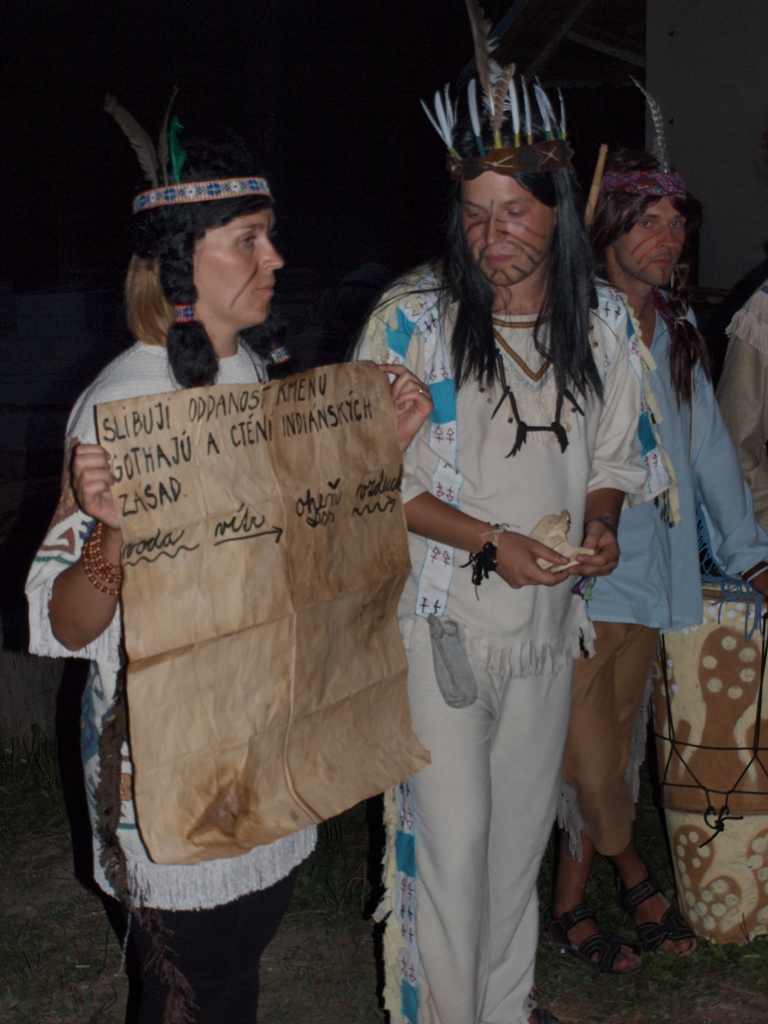 SLIBUJI ODDANOST KMENU
GOTHAJŮ A CTĚNÍ INDIÁNSKÝCH
ZÁSAD.
voda vítr oheň vzduch